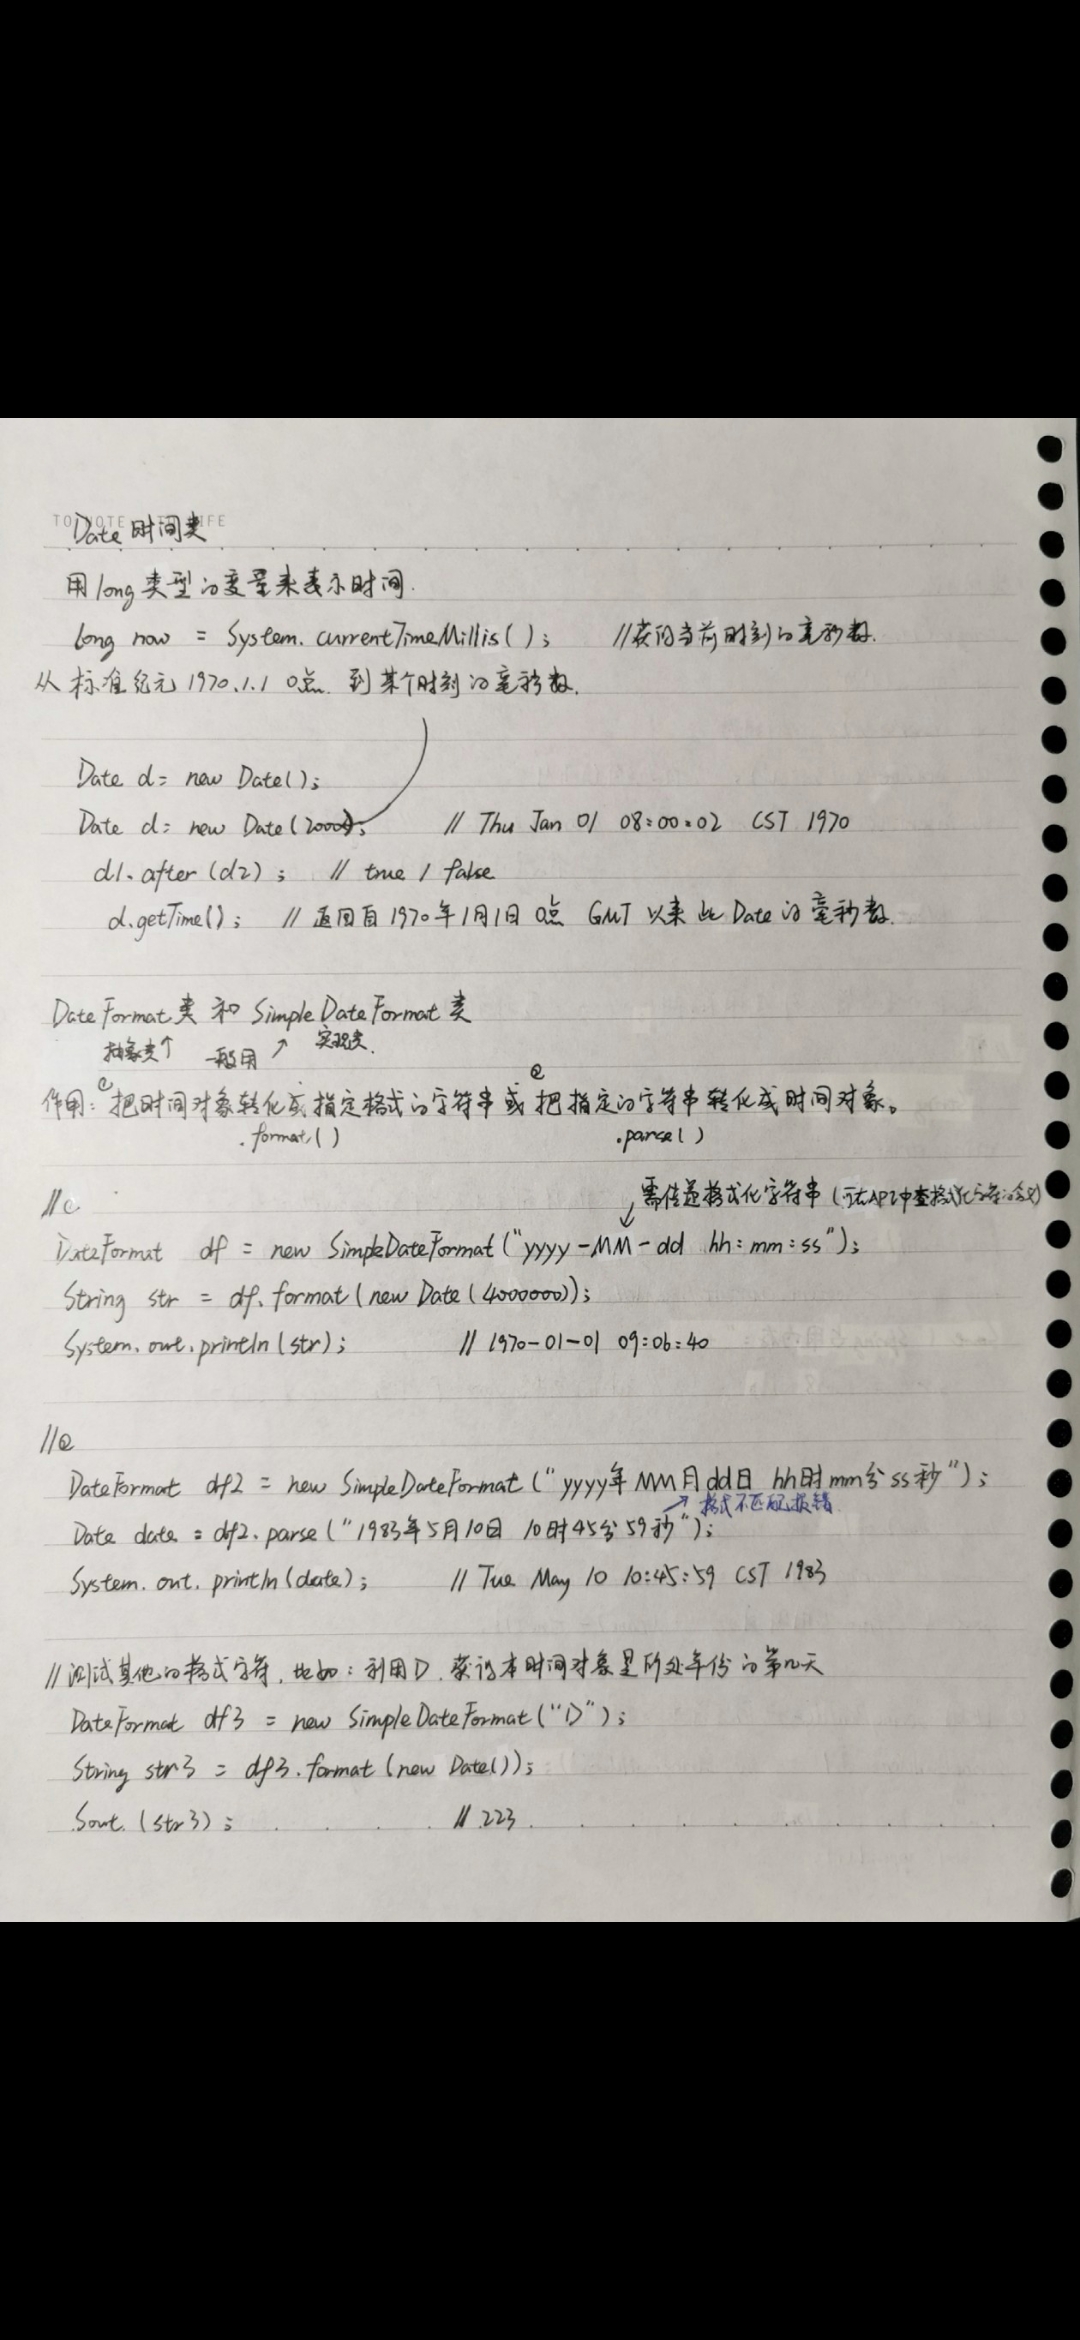 Date时间类
用long类型的变量来表示时间.
long now = System.currentTimeMillis(); //获的当前时刻的毫秒数.
从标准纪元1970.1.1 0点 到某个时刻的毫秒数.
Date d= new Date();
Date d= new Date(2000); // Thu Jan 01 08:00:02 CST 1970
d1.after(d2); // true / false
d.getTime(); // 返回自1970年1月1日 0点 GMT 以来此Date的毫秒数.
DateFormat类 和 SimpleDateFormat类
抽象类↑ 一般用↗ 实现类.
作用: 把时间对象转化成指定格式的字符串或 把指定的字符串转化成时间对象。
.format() .parse()
需传递格式化字符串 (可在API中查格式化字符的含义)
//
DateFormat df = new SimpleDateFormat("yyyy-MM-dd hh:mm:ss");
String str = df.format(new Date(4000000));
System.out.println(str); // 1970-01-01 09:06:40
//②
DateFormat df2 = new SimpleDateFormat("yyyy年MM月dd日 hh时mm分ss秒");
↗ 格式不匹配报错
Date date = df2.parse("1983年5月10日 10时45分59秒");
System.out.println(date); // Tue May 10 10:45:59 CST 1983
//测试其他的格式字符, 比如: 利用D, 获得本时间对象是所处年份的第几天
DateFormat df3 = new SimpleDateFormat("D");
String str3 = df3.format(new Date());
Sout.(str3); // 223